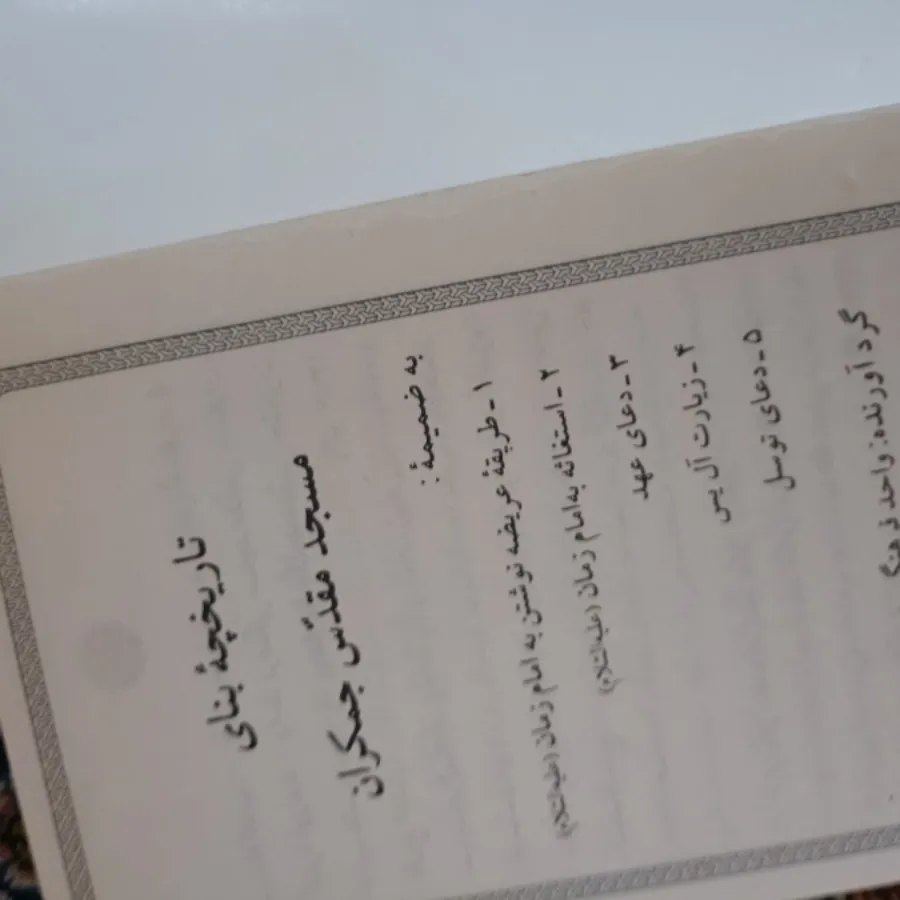 تاریخچهٔ بنای
مسجد مقدّس جمکران
به ضمیمهٔ:
۱ - طریقهٔ عریضه نوشتن به امام زمان (علیه‌السّلام)
۲ - استغاثه به امام زمان (علیه‌السّلام)
۳ - دعای عهد
۴ - زیارت آل یس
۵ - دعای توسل
گردآورنده: واحد